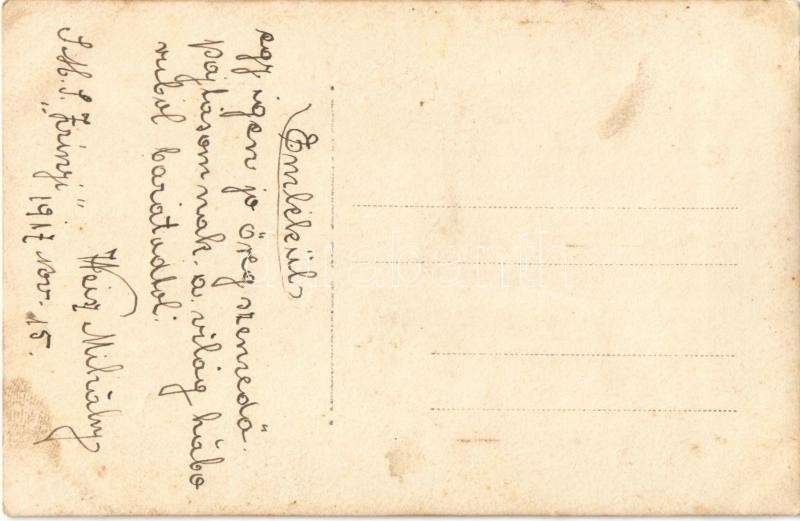 Emlékül
egy igen jó öreg szenvedő
pajtásomnak a világ hábo
ruból barátodtól.
Weisz Mihály
S.M.S. „Zrinyi”
1917 nov. 15.
darabanth